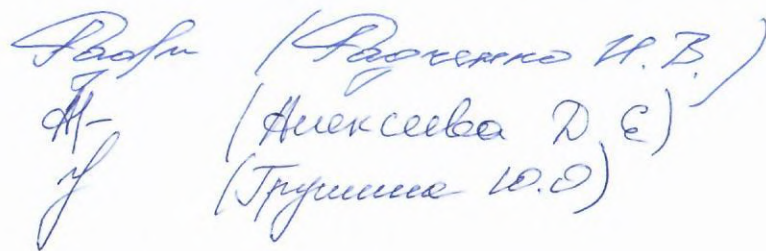 (Радченко И.В.)
(Алексеева Д Е)
(Грушина Ю.О)